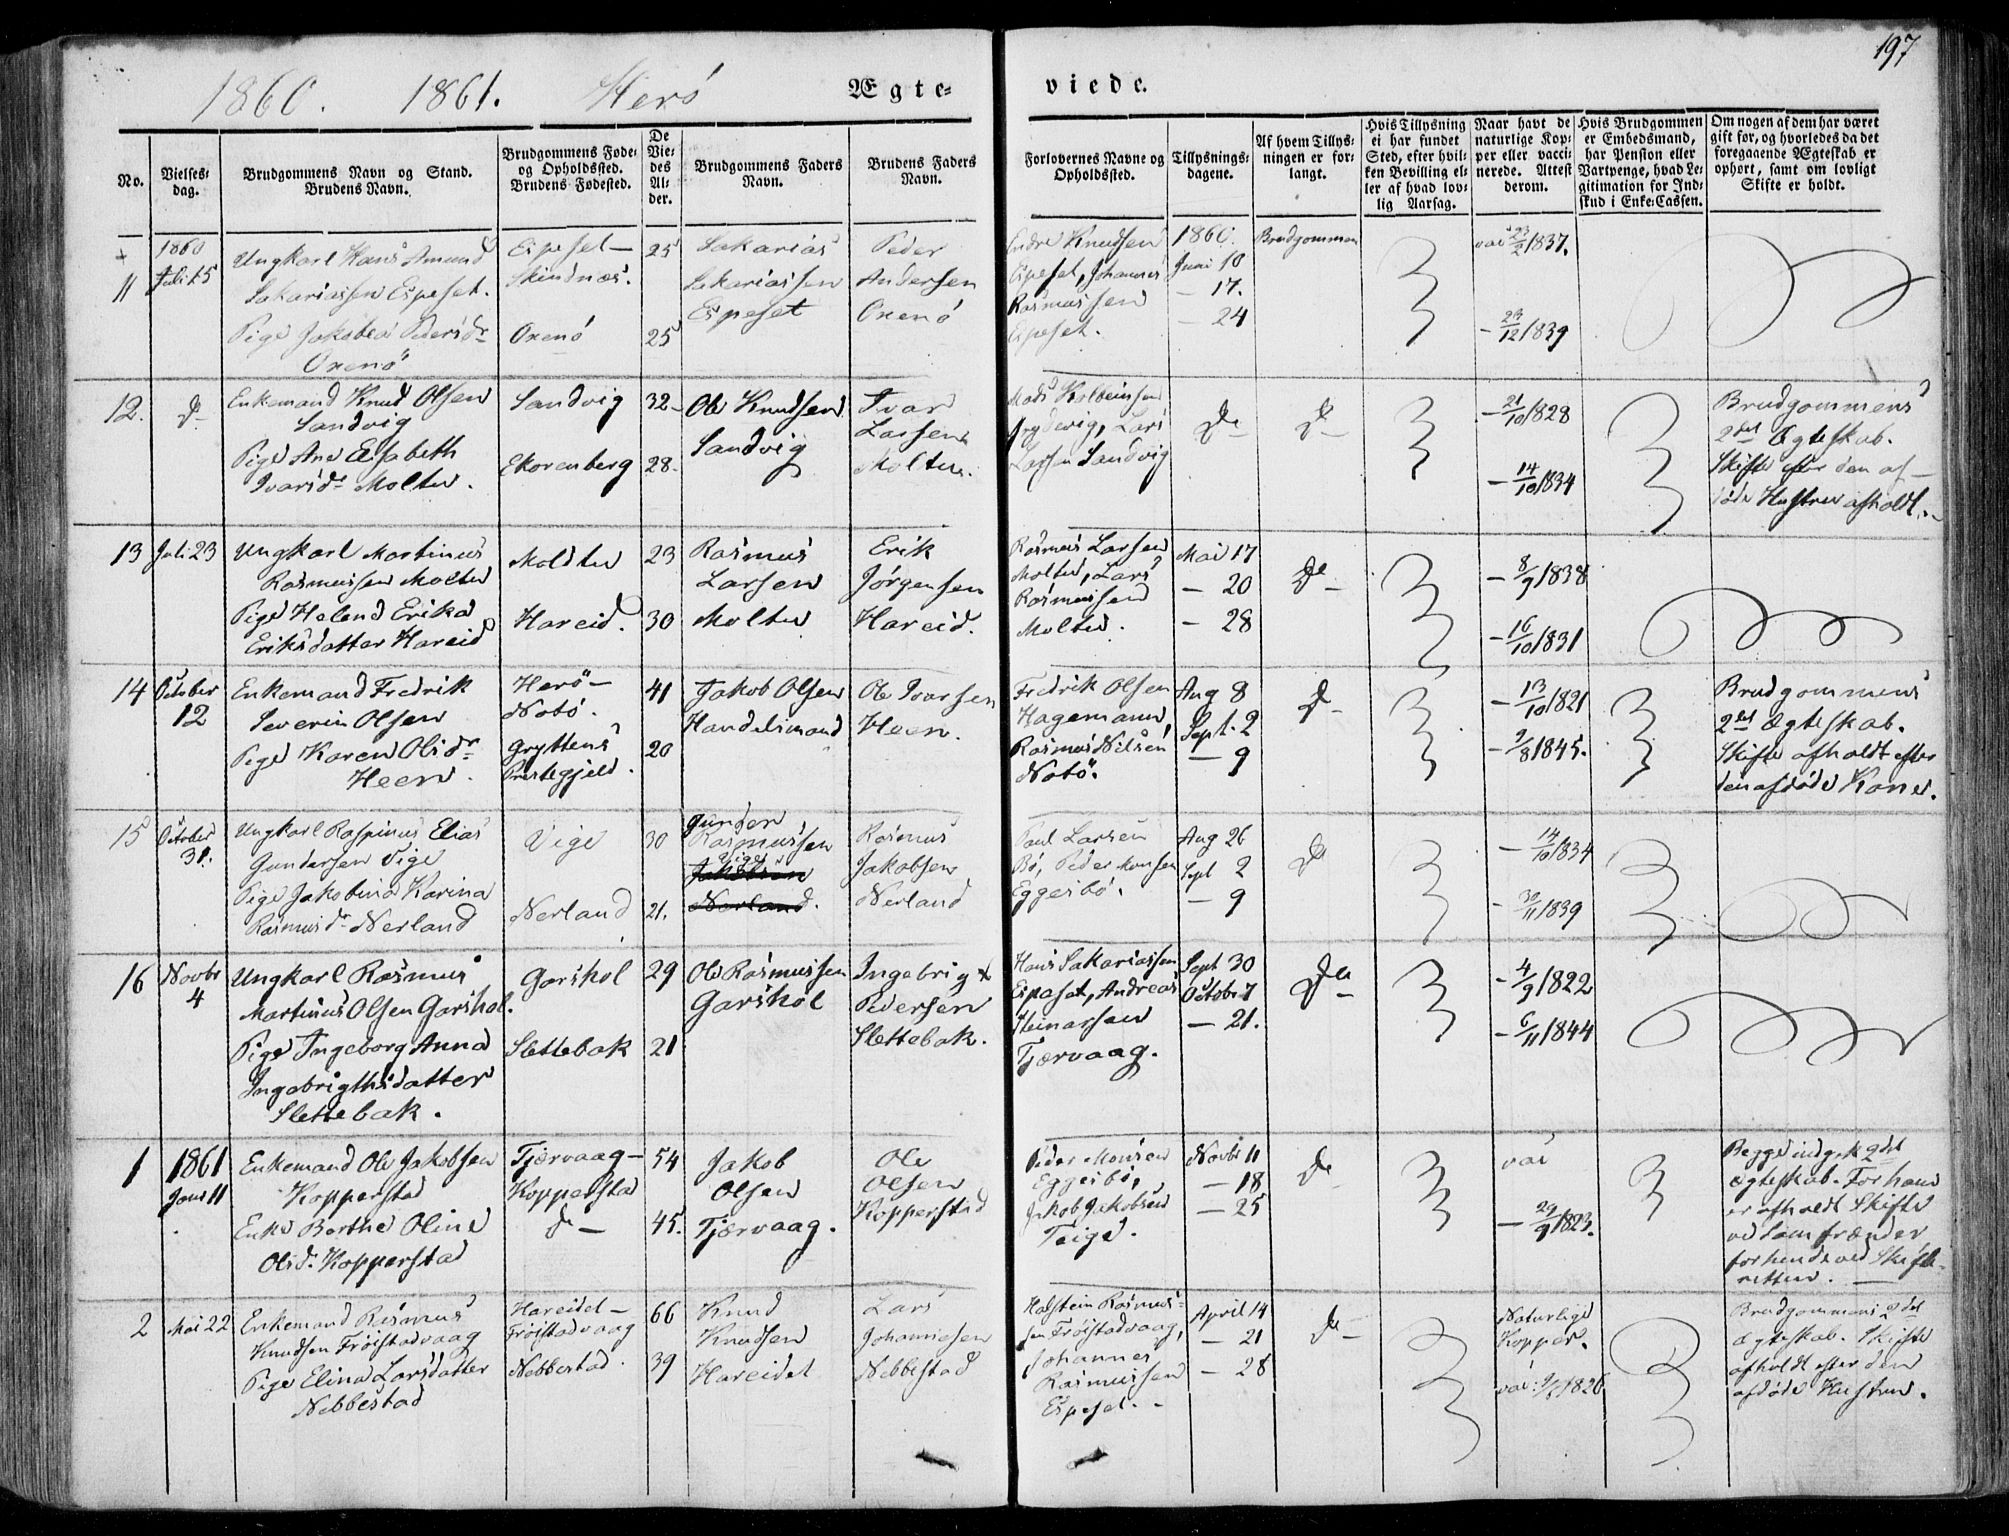 197
1860. 1861. Herö Ægte= viede.
No.
Vielses=
dag.
Brudgommens Navn og Stand.
Brudens Navn.
Brudgommens Føde=
og Opholdssted.
Brudens Fødested.
De
Vie=
des
Al=
der.
Brudgommens Faders
Navn.
Brudens Faders
Navn.
Forlovernes Navne og
Opholdssted.
Tillysnings=
dagene.
Af hvem Tillys=
ningen er for=
langt.
Hvis Tillysning
ei har fundet
Sted, efter hvil=
ken Bevilling el=
ler af hvad lov=
lig Aarsag.
Naar havt de
naturlige Kop=
per eller vacci=
nerede. Attest
derom.
Hvis Brudgommen
er Embedsmand,
har Pension eller
Vartpenge, hvad Le=
gitimation for Ind=
skud i Enke=Cassen.
Om nogen af dem har været
gift før, og hvorledes da det
foregaaende Ægteskab er
ophørt, samt om lovligt
Skifte er holdt.
11
1860
Juli 15
Ungkarl Hans Amund
Sakariassen Espeset.
Pige Jakobea Pedersdr
Oxenö
Espeset—
Skindnæs.
Oxenö
25
25
Sakarias
Sakariassen
Espeset
Peder
Andersen
Oxenö
Endre Knudsen
Espeset, Johannes
Rasmussen
Espeset.
1860.
Juni 10
— 17.
— 24
Brudgommen
vac 23/2 1837.
— 23/12 1839
12.
do
Enkemand Knud Olsen
Sandvig
Pige Ane Elisabeth
Ivarsdr Moltu.
Sandvig
Ekorenberg
32
28.
Ole Knudsen
Sandvig
Ivar
Larsen
Moltu.
Mads Kolbeinsen
Frydevig, Lars
Larsen Sandvig
do
do
— 21/10 1828
— 14/10 1834
Brudgommens
2det Ægteskab.
Skifte efter den af—
døde Hustrue afholdt.
13
Juli 23
Ungkarl Martinus
Rasmussen Moltu
Pige Helene Erika
Eriksdatter Hareid
Moldtu
Hareid.
23
30
Rasmus
Larsen
Moltu
Erik
Jörgensen
Hareid.
Rasmus Larsen
Moltu, Lars
Rasmussen
Moltu.
Mai 17
— 20
— 28
do
— 8/9 1838
— 16/10 1831
14
October
12
Enkemand Fredrik
Severin Olsen
Pige Karen Olsdr
Heen.
Herö—
Notö.
Gryttens
Prestegjeld.
41
20
Jakob Olsen
Handelsmand
Ole Ivarsen
Heen.
Fredrik Olsen
Hagemann,
Rasmus Nilsen
Notö.
Aug 8
Sept. 2
— 9
do
— 13/10 1821
— 9/8 1845.
Brudgommens
2det Ægteskab.
Skifte afholdt efter
den afdøde Kone.
15
October
31.
Ungkarl Raspinus Elias
Gundersen Vige
Pige Jakobine Karina
Rasmusdr Nerland
Vige
Nerland
30
21.
Gunder
Rasmussen
Vige
Jakobsen
Nerland.
Rasmus
Jakobsen
Nerland
Paul Larsen
Bö, Peder Monsen
Eggesbö.
Aug 26
Sept 2
— 9
do
— 14/10 1834
— 30/11 1839
16
Novbr
4
Ungkarl Rasmus
Martinus Olsen Garshol.
Pige Ingeborg Anna
Ingebrigthsdatter
Slettebak.
Garshol
Slettebak
29
21
Ole Rasmussen
Garshol
Ingebrigt
Pedersen
Slettebak.
Hans Sakariassen
Espeset, Andreas
Steinarsen
Tjærvaag.
Sept 30
Octobr 7
— 21.
do
— 4/9 1822
— 6/11 1844
1
1861
Janr 11
Enkemand Ole Jakobsen
Kopperstad
Enke Berthe Oline
Olsdr Kopperstad
Tjærvaag—
Kopperstad
do —
54
45.
Jakob
Olsen
Tjærvaag.
Ole
Olsen
Kopperstad
Peder Monsen
Eggesbö,
Jakob Jakobsen
Teige.
Novbr 11
— 18
— 25
do
vac
— 29/9 1823.
Begge indg. i 2det
Ægteskab. For ham
er afholdt Skifte
ved Samfrænder
for hende ved Skifte=
retten. —
2
Mai 22
Enkemand Rasmus
Knudsen Fröistadvaag
Pige Elina Larsdatter
Nebbestad
Hareidet—
Fröistadvaag
Nebbestad.
66
39
Knud
Knudsen
Hareidet
Lars
Johannesen
Nebbestad
Holstein Rasmus=
sen Fröistadvaag,
Johannes
Rasmussen
Espeset.
April 14
— 21
— 28
do
Naturlige
Kopper.
Brudgommens 2det
Ægteskab. Skifte
afholdt efter den
afdøde Hustrue.